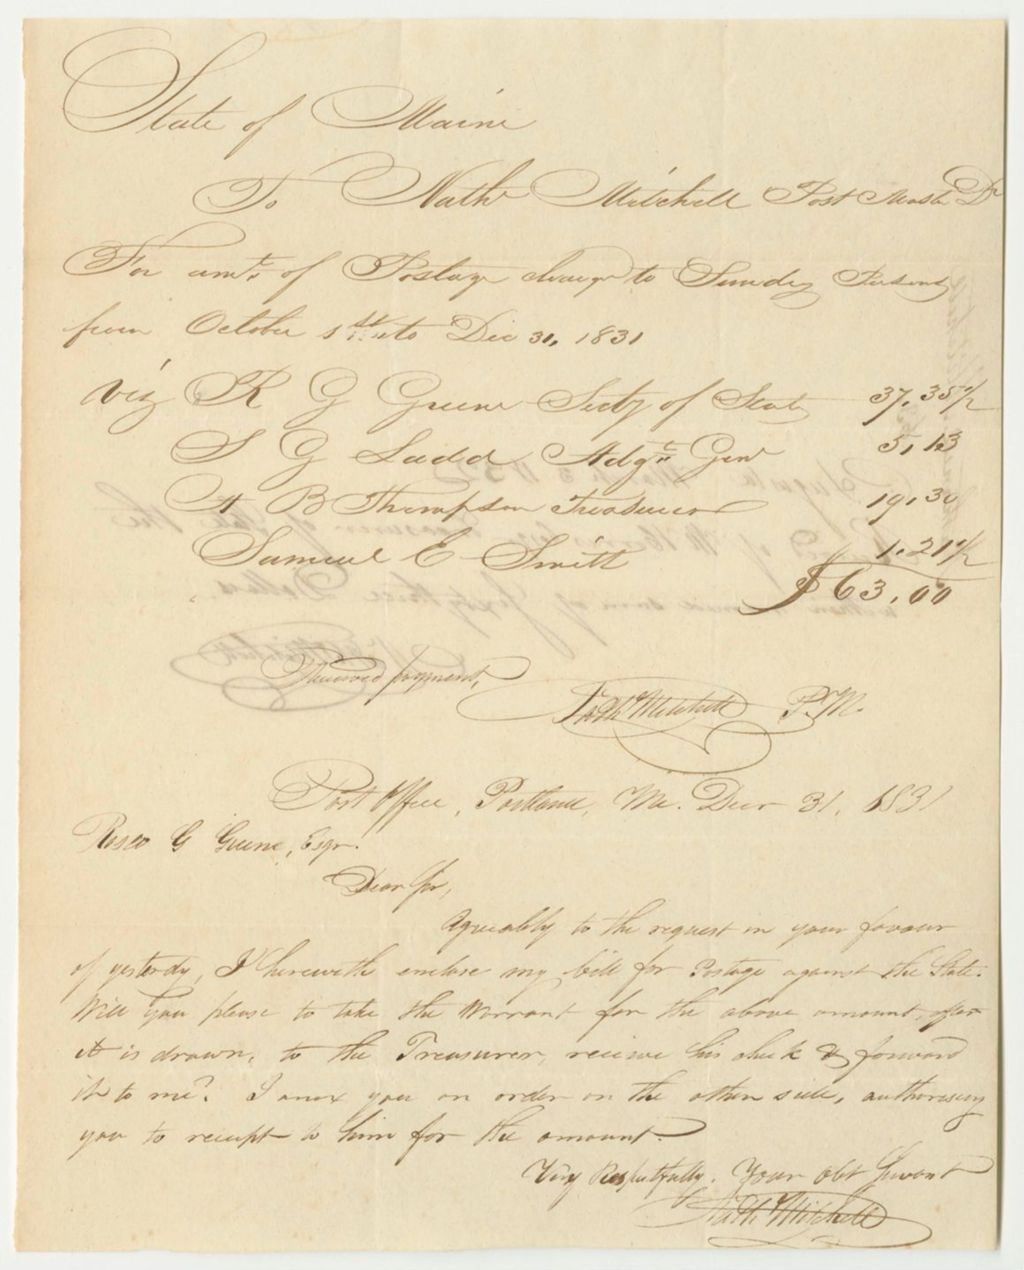 State of Maine
To Nath^l Mitchell Post Mast^r D^r
For am^t of Postage charged to Sundry Persons
from October 1st to Dec 31, 1831
viz R G Greene Secty of State 37.35 1/2
S G Ladd Adg^t Gen^l 5.13
A B Thompson Treasurer 19.30
Samuel E Smith 1.21 1/2
$63.00
Received payment,
Nath^l Mitchell P.M.
Post Office, Portland, Me. Decr 31, 1831
Rosco G Greene, Esqr.
Dear Sir,
Agreeably to the request in your favour
of yesterday, I herewith enclose my bill for Postage against the State.
Will you please to take the Warrant for the above amount, after
it is drawn, to the Treasurer, receive his check & forward
it to me? I anex you an order on the other side, authorising
you to receipt to him for the amount.
Very Respectfully, Your Obt Servant
Nath^l Mitchell